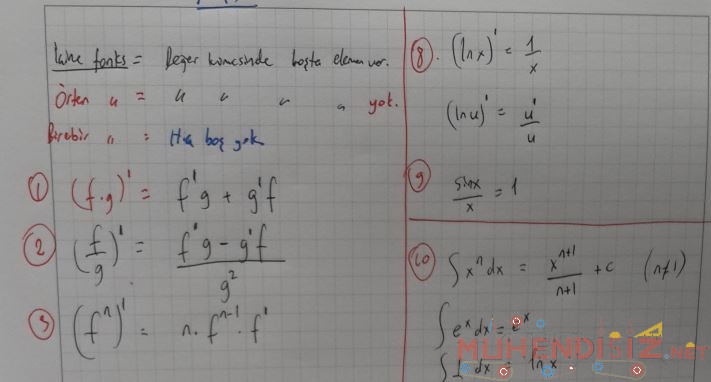 İçine fonks = Değer kümesinde boşta eleman var.
Örten " = " " " " yok.
Birebir " = Hiç boş yok
① (f.g)' = f'g + g'f
② (f/g)' = f'g - g'f / g²
③ (fⁿ)' = n. fⁿ⁻¹. f'
⑧. (lnx)' = 1/x
(lnu)' = u'/u
⑨ sinx/x = 1
⑩ ∫xⁿdx = xⁿ⁺¹/n+1 + c (n≠1)
∫eˣdx = eˣ
dx = lnx
MUHENDİSİZ.NET